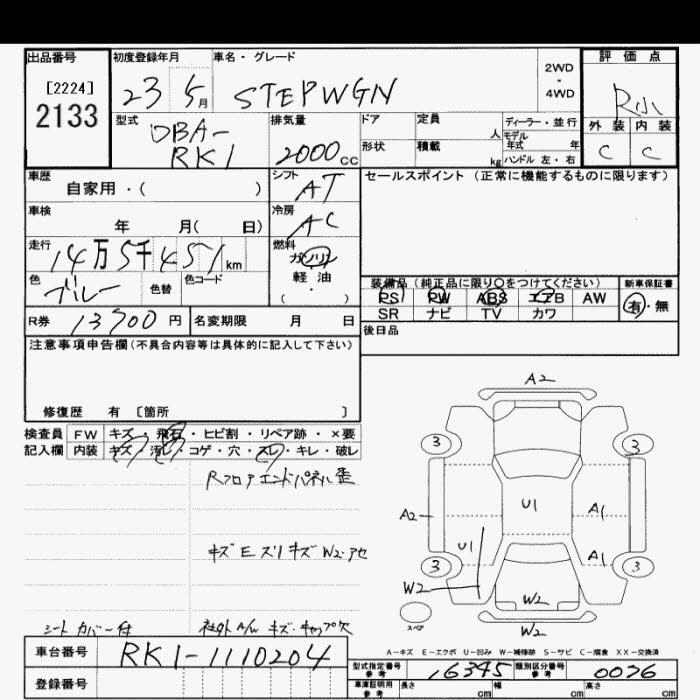 出品番号
[2224]
2133
初度登録年月
23 5月
車名・グレード
STEPWGN
2WD
・
4WD
評価点
R小
外装 内装
C C
型式
DBA-
RK1
排気量
2000cc
ドア
形状
定員 人
積載 kg
ディーラー・並行
モデル
年式 年
ハンドル 左・右
車歴
自家用・( )
シフト
AT
セールスポイント(正常に機能するものに限ります)
車検
年 月( 日)
冷房
AC
走行
14万5千451km
燃料
ガソリン
軽・油
( ・ )
色
色替
色コード
装備品(純正品に限り○をつけてください)
PS PW ABS エアB AW
SR ナビ TV カワ
新車保証書
有・無
R券 13700円
名変期限 月 日
後日品
注意事項申告欄(不具合内容等は具体的に記入して下さい)
修復歴 有 [箇所 ]
検査員
記入欄
FW キズ・飛石・ヒビ割・リペア跡・×要
内装 キズ・汚レ・コゲ・穴・スレ・キレ・破レ
Rフロアエンドパネル歪
キズ E ズリキズ W2・アセ
シートカバー付
社外A/W キズ・キャップ欠
A2
3 3
A2 U1 A1
U1 A1
3 3
W2
W2
スペア
W2
A-キズ E-エクボ U-凹み W-補修跡 S-サビ C-腐食 XX-交換済
車台番号
RK1-1110204
登録番号
型式指定番号
参考
16345
類別区分番号
参考
0036
車庫証明用
参考
長さ cm 幅 cm 高さ cm